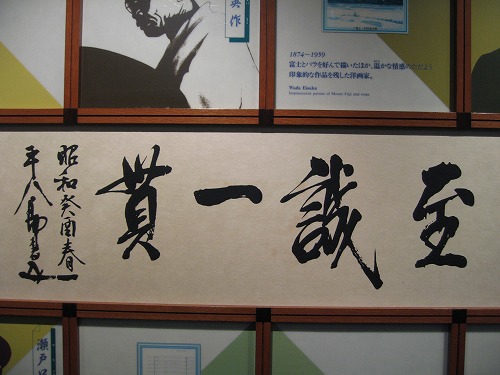 英作
1874-1959
富士とバラを好んで描いたほか、温かな情感のただよう
印象的な作品を残した洋画家。
Wada Eisaku
至誠一貫
昭和癸酉春
平八郎書
瀬戸口